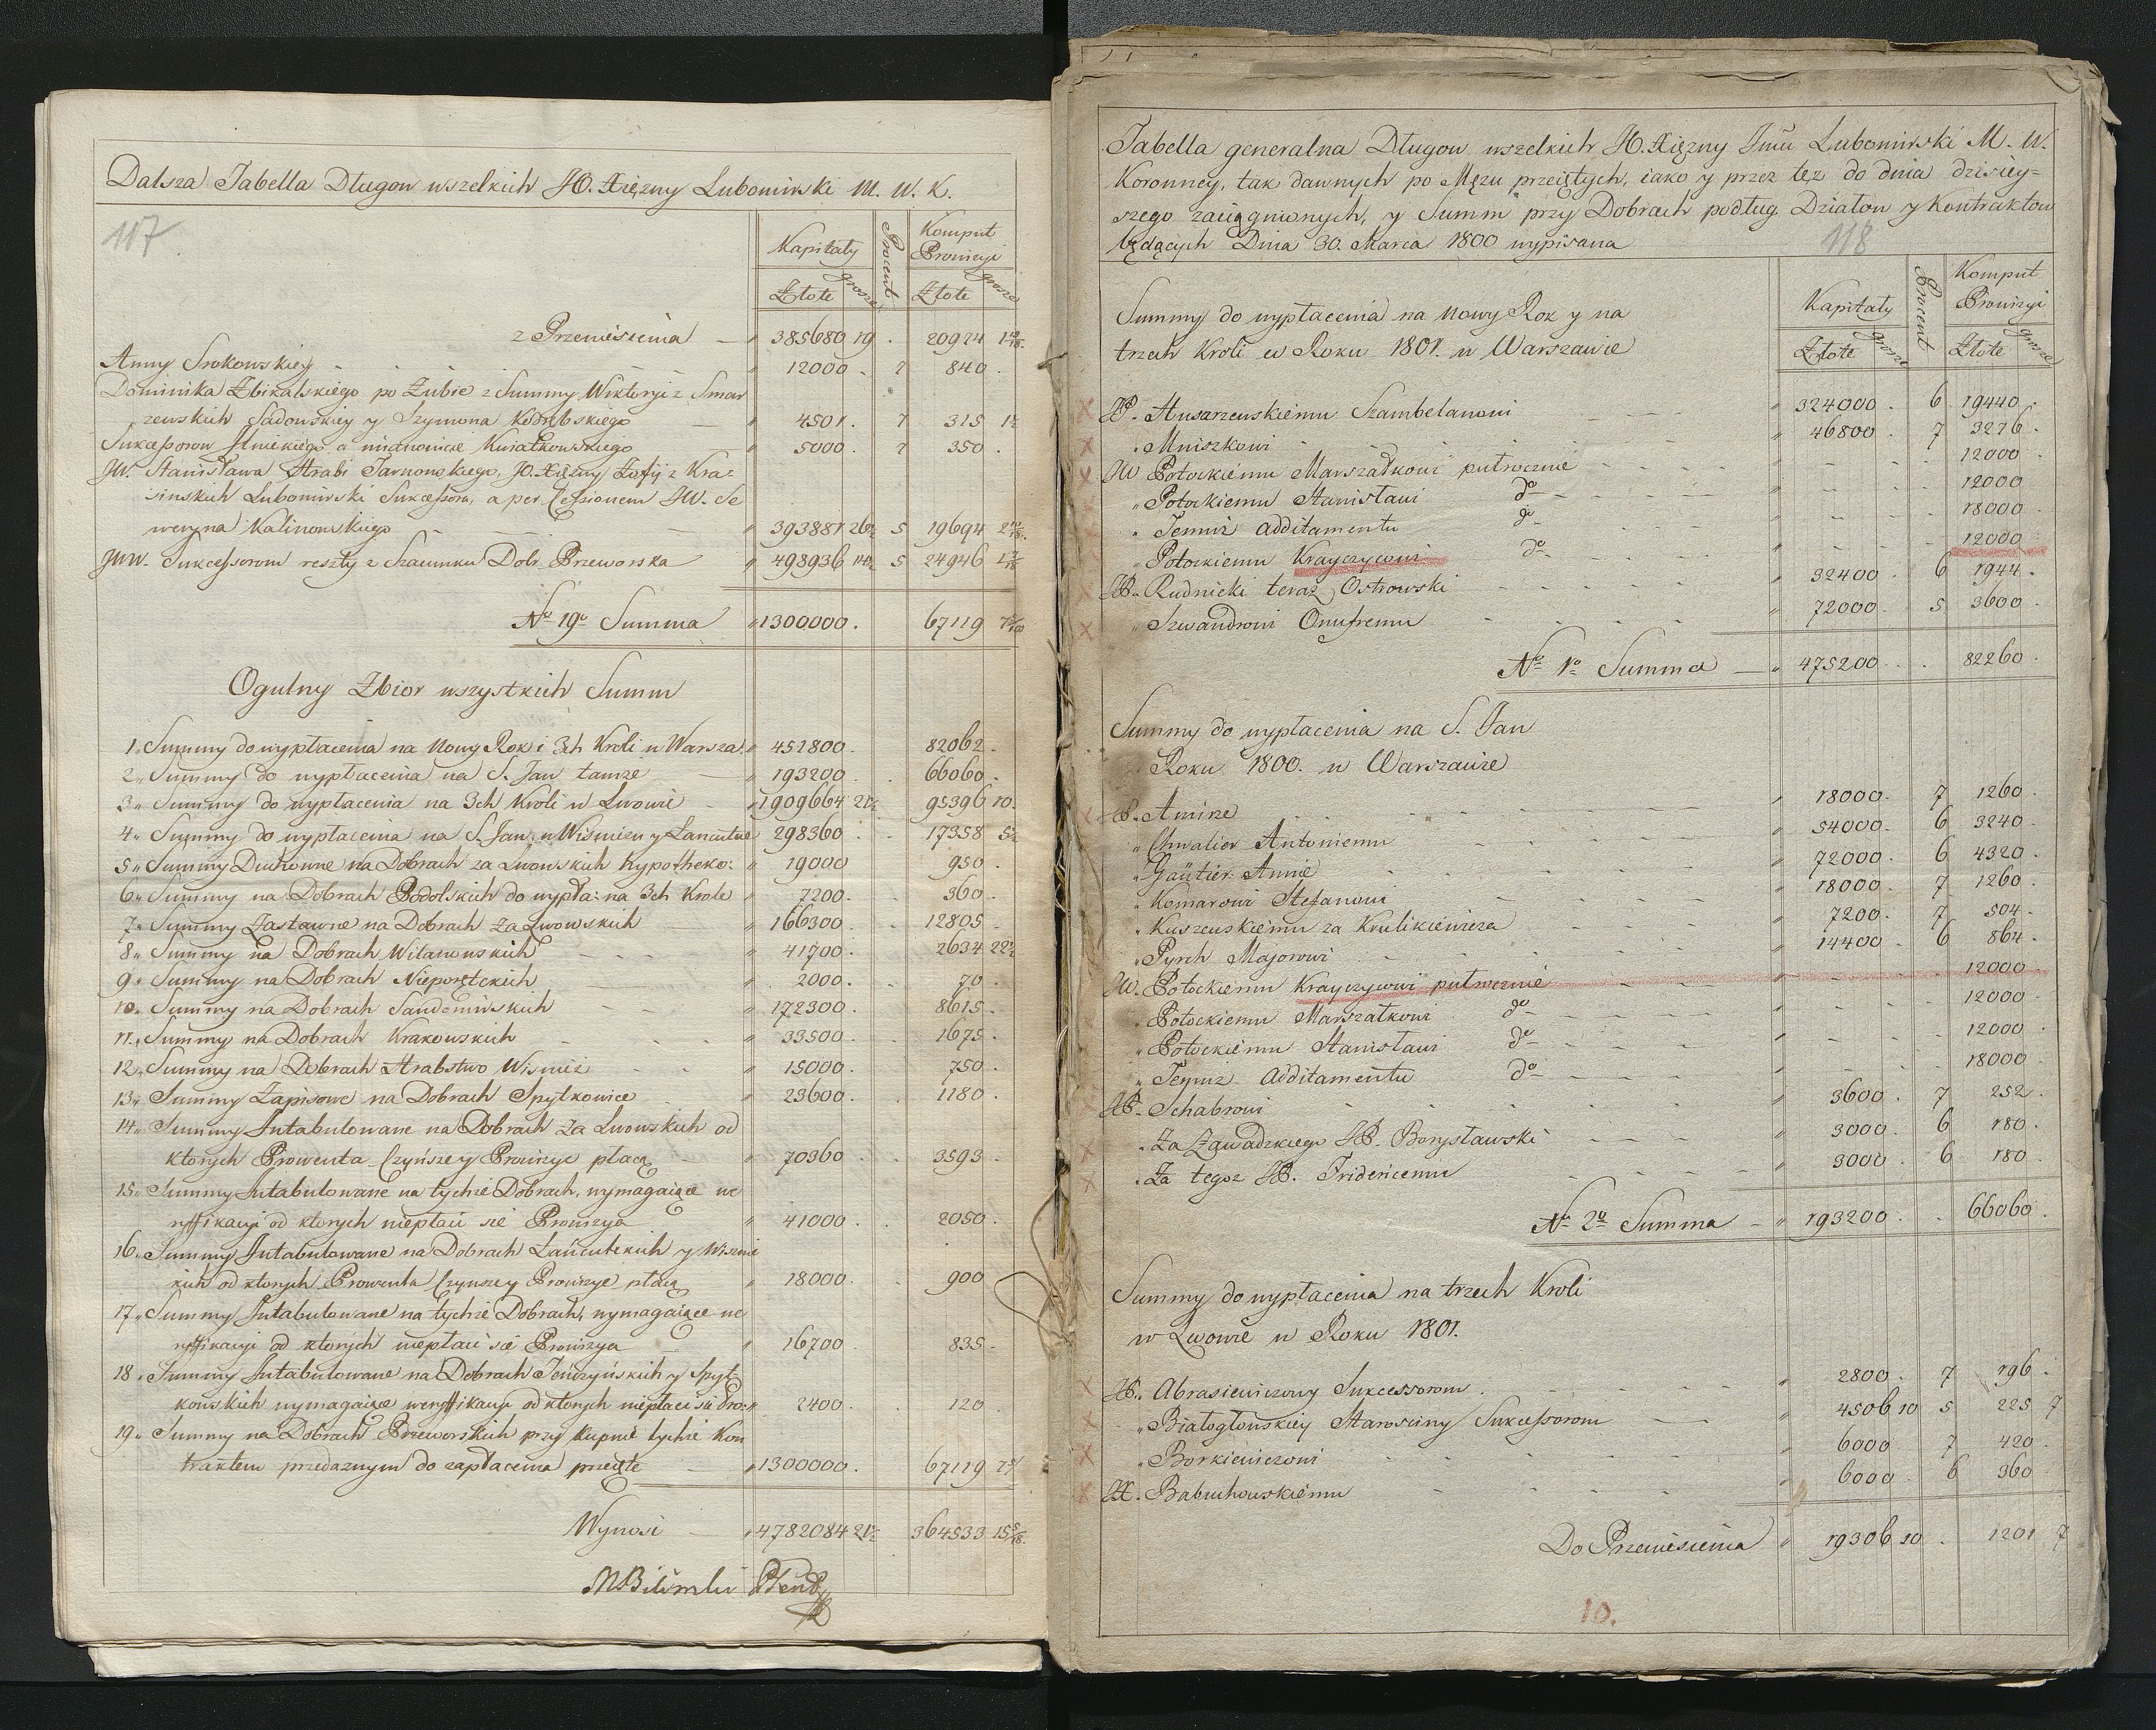 Dalsza Tabella Długow wszelkich JO. Xiężny Lubomirski M. W. K.
117
Kapitały Procent Komput Prowizyi
Złote grosze Złote grosze
z Przeniesienia 385680 19 . 20924
Anny Srokowskiey 12000 . 7 840 .
Dominika Zbikalskiego po Zubie z Summy Wiktoryi z Smar
zewskich Sadowskiey y Szymona 4501 . 7 315 1½
Sukcessorow a mianowicie Kwiatkowskiego 5000 . 7 350 .
JW. Stanisława Hrabi Tarnowskiego, JO. Xiężny Zofij z Kra=
sinskich Lubomirski Sukcessora, a per Cessionem JW. Se
weryna Kalinowskiego 393881 26½ 5 19694
JWW. Sukcessorom reszty z Szacunku Dobr Przeworska 498936 14½ 5 24946
No 19o Summa 1300000 . 67119
Ogulny Zbior wszystkich Summ
1. Summy do wypłacenia na Nowy Rok i 3ch Kroli w Warsza. 452800 . 82062 .
2. Summy do wypłacenia na S. Jan tamże 193200 . 66060 .
3. Summy do wypłacenia na 3ch Kroli w Lwowie 1909664 21½ 95396 10.
4. Summy do wypłacenia na S. Jan w Wisniczu y Łancutcie 298360 . 17358 5½
5. Summy Duchowne na Dobrach za Lwowskich hypotheko: 19000 950 .
6. Summy na Dobrach Podolskich do wypła: na 3ch Krole 7200 . 360 .
7. Summy Zastawne na Dobrach Za Lwowskich 166300 . 12805 .
8. Summy na Dobrach Wilanowskich 41700 . 2634 22½
9. Summy na Dobrach Nieporętckich 2000 . 70 .
10. Summy na Dobrach Sandomirskich 172300 . 8615 .
11. Summy na Dobrach Krakowskich 33500 . 1675 .
12. Summy na Dobrach Hrabstwo Wisnicz 15000 . 750 .
13. Summy Zapisowe na Dobrach Spytkowice 23600 . 1180 .
14. Summy Intabulowane na Dobrach Za Lwowskich od
ktorych Prowenta Czynsze y Prowizye płacą 70360 . 3593 .
15. Summy Intabulowane na tychże Dobrach, wymagaiące we
ryffikacyi od ktorych niepłaci się Prowizya 41000 . 2050 .
16. Summy Intabulowane na Dobrach Łańcutckich y Wisnic
kich od ktorych Prowenta Czynsze y Prowizye płacą 18000 . 900
17. Summy Intabulowane na tychże Dobrach, wymagaiące we
ryffikacyi od ktorych niepłaci się Prowizya 16700 835 .
18. Summy Intabulowane na Dobrach Tenczyńskich y Spyt=
kowskich wymagaiące weryffikacyi od ktorych niepłaci się Pro: 2400 . 120
19. Summy na Dobrach Przeworskich przy kupnie tychże Kon
traktem przedażnym do zapłacenia przeięte 1300000 . 67119
Wynosi 4782084 21½ 364533
Tabella generalna Długow wszelkich JO. Xiężny Jmci Lubomirski M. W.
Koronney, tak dawnych po Mężu przeiętych, iako y przez tęż do dnia dzisiey=
szego zaciągnionych, y Summ przy Dobrach podług Działow y Kontraktow
będących Dnia 30. Marca 1800 wypisana
118
Kapitały Procent Komput Prowizyi
Złote grosze Złote grosze
Summy do wypłacenia na Nowy Rok y na
trzech Kroli w Roku 1801. w Warszawie
X JP. Husarzewskiemu Szambelanowi 324000 . 6 19440 .
X Mniszkowi 46800 . 7 3276 .
X JW Potockiemu Marszałkowi pułrocznie 12000 .
X Potockiemu Stanisławi do 12000
X Temuż additamentu do 18000
X Potockiemu Krayczywui do 12000
X JP. Rudnicki teraz Ostrowski 32400 . 6 1944 .
X Szwandrowi Onufremu 72000 . 5 3600 .
No 1o Summa 475200 . . 82260 .
Summy do wypłacenia na S. Jan
Roku 1800. w Warszawie
X JP. Aminze 18000 . 7 1260 .
Chwalier Antoniemu 54000 . 6 3240 .
Gautier Annie 72000 . 6 4320 .
Komarowi Stefanowi 18000 . 7 1260 .
Kuszewskiemu za Krulikiewicza 7200 . 7 504 .
Pyrch Majorowi 14400 . 6 864 .
JW. Potockiemu Krayczywui pułrocznie 12000
Potockiemu Marszałkowi do 12000 .
Potockiemu Stanisławi do 12000 .
Temuż Additamentu do 18000 .
X JP. Schabrowi 3600 . 7 252 .
X Za Zawadzkiego JP. Borysławski 3000 . 6 180 .
X Za tegoż JP. Fridericemu 3000 . 6 180
No 2o Summa 193200 . . 66060 .
Summy do wypłacenia na trzech Kroli
w Lwowie w Roku 1801.
X JP. Abrasiewiczowy Sukcessorom . 2800 . 7 196 .
X Białogłowskiey Starosciny Sukcessorom 4506 10 5 225 7
X Borkiewiczowi 6000 . 7 420 .
X JX. Babuchowskiemu 6000 . 6 360
Do Przeniesienia 19306 10 . 1201 7
10.